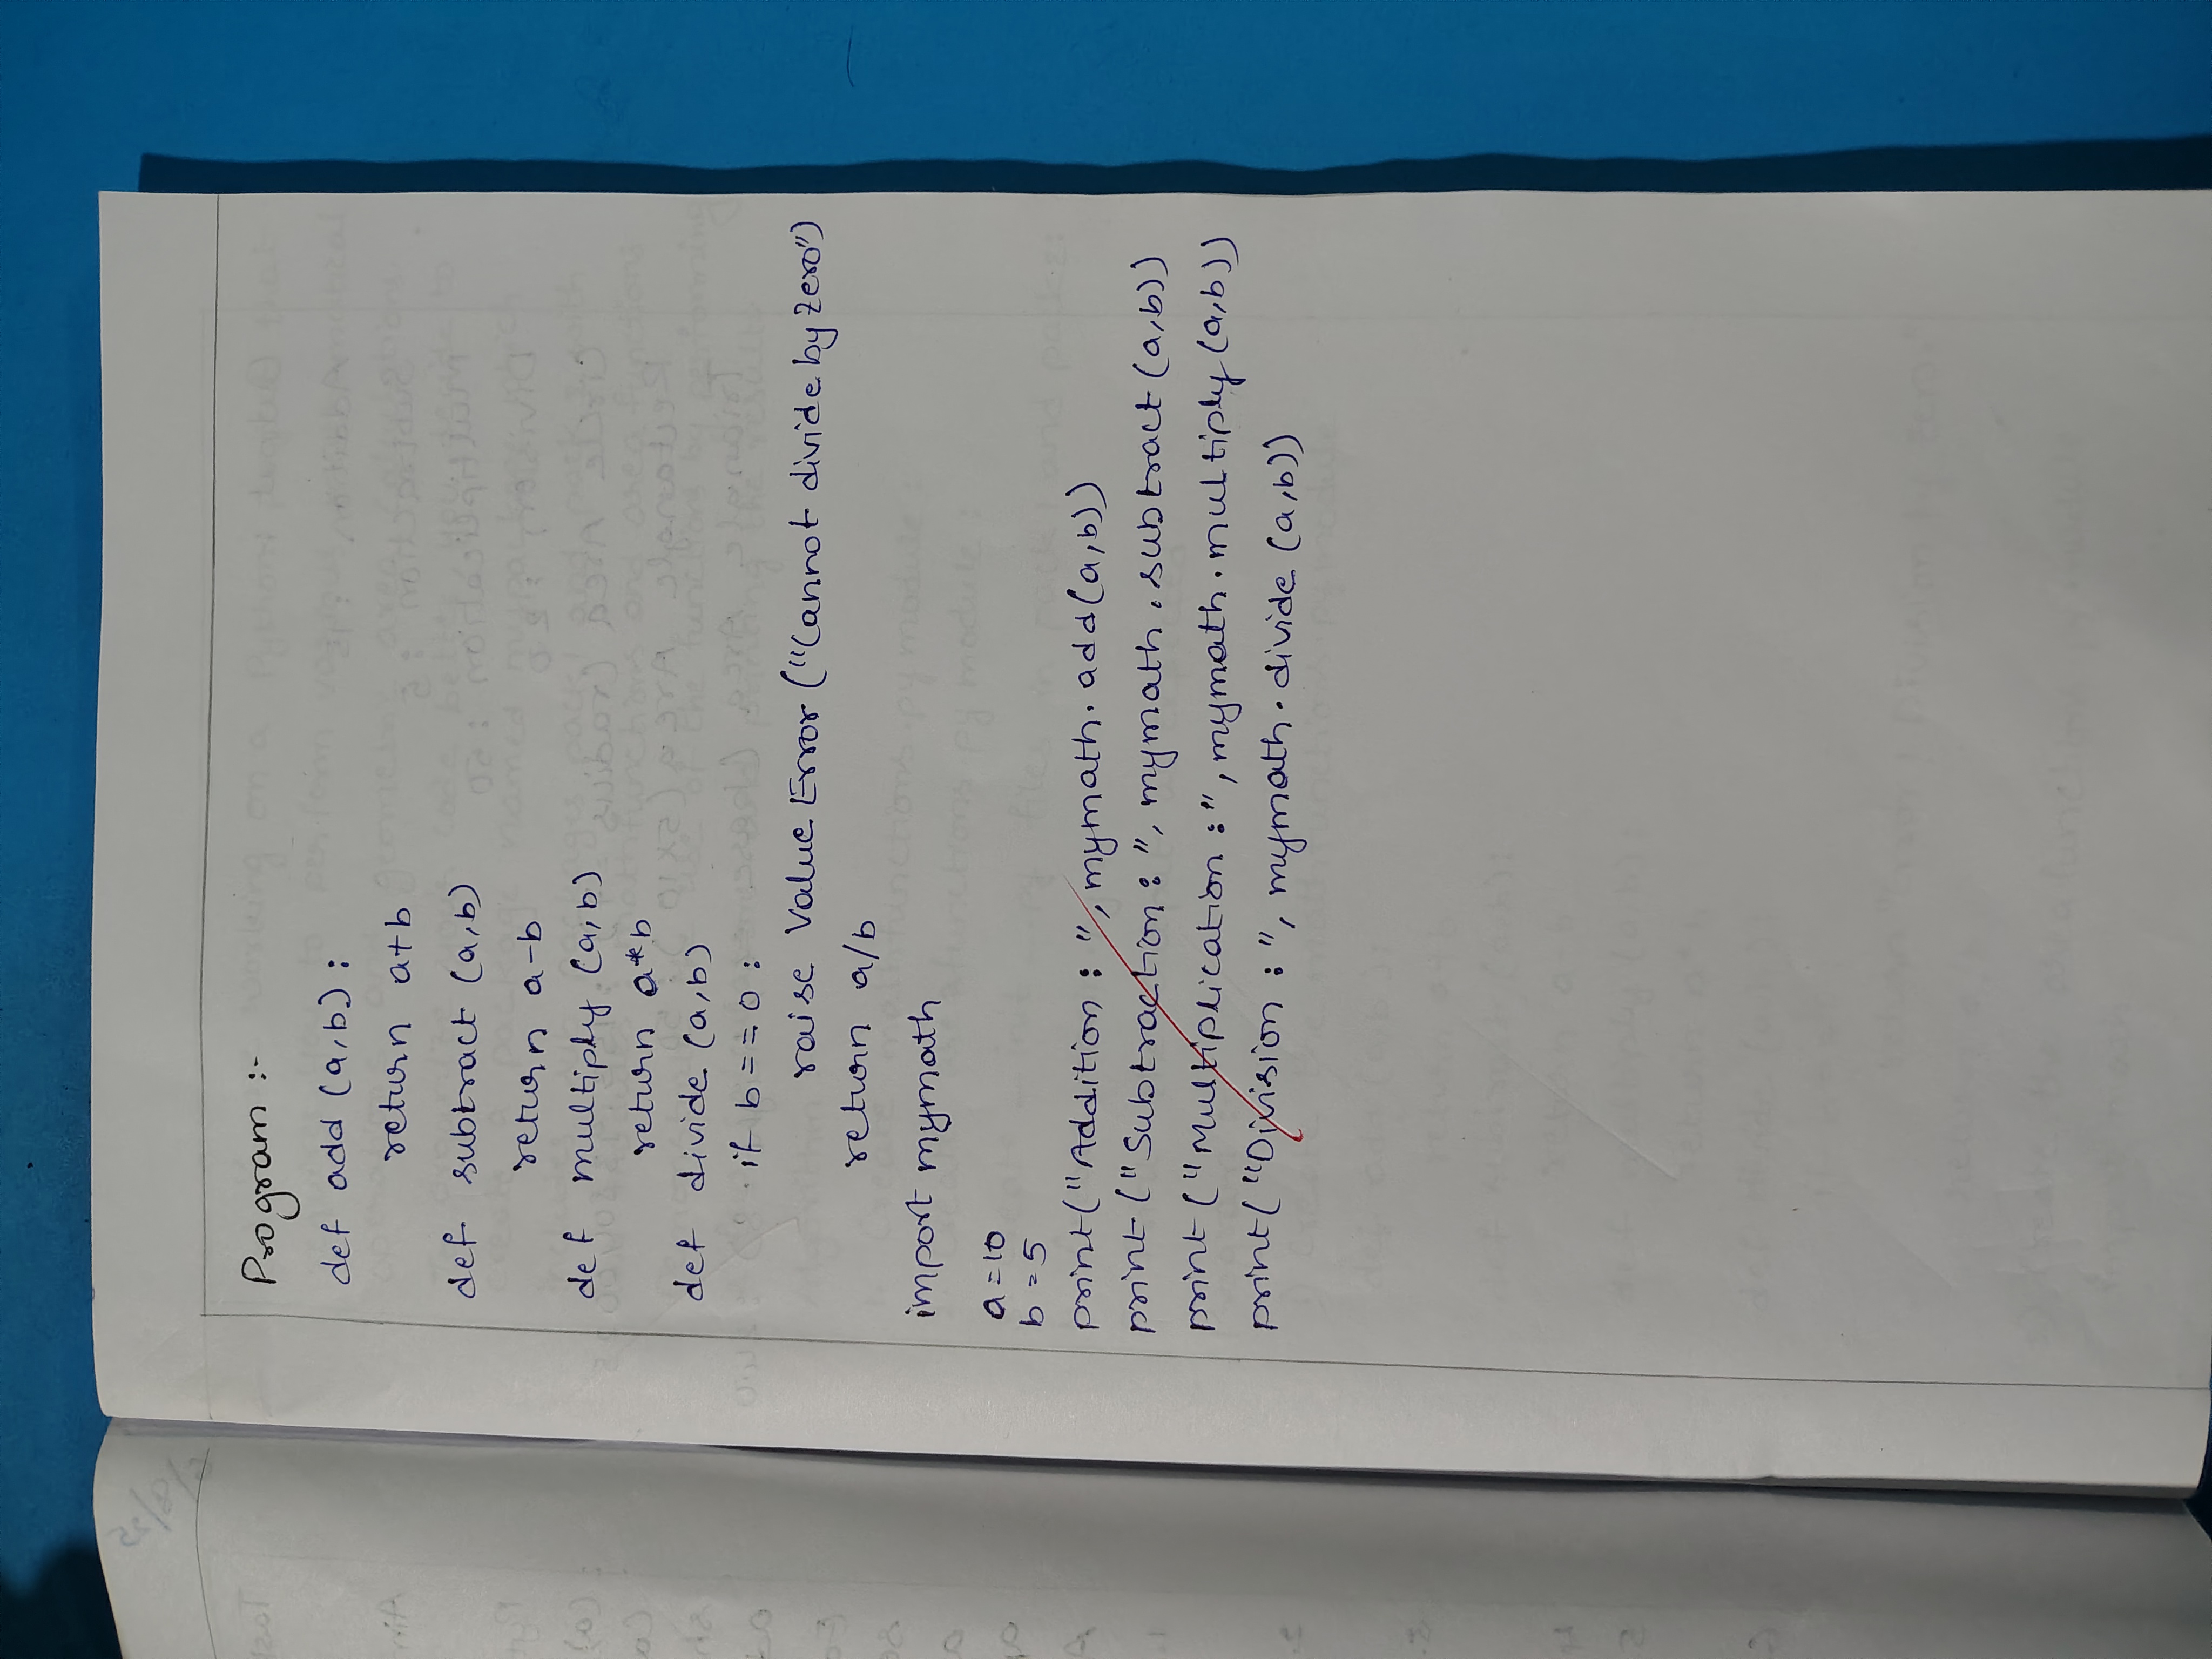 Program :-
def add (a,b) :
return a+b
def subtract (a,b)
return a-b
def multiply (a,b)
return a*b
def divide (a,b)
if b==0 :
raise Value Error ("Cannot divide by Zero")
return a/b
import mymath
a=10
b=5
print("Addition : ", mymath.add(a,b))
print ("Subtraction : ", mymath.subtract (a,b))
print ("Multiplication :", mymath.multiply (a,b))
print("Division : ", mymath.divide (a,b))